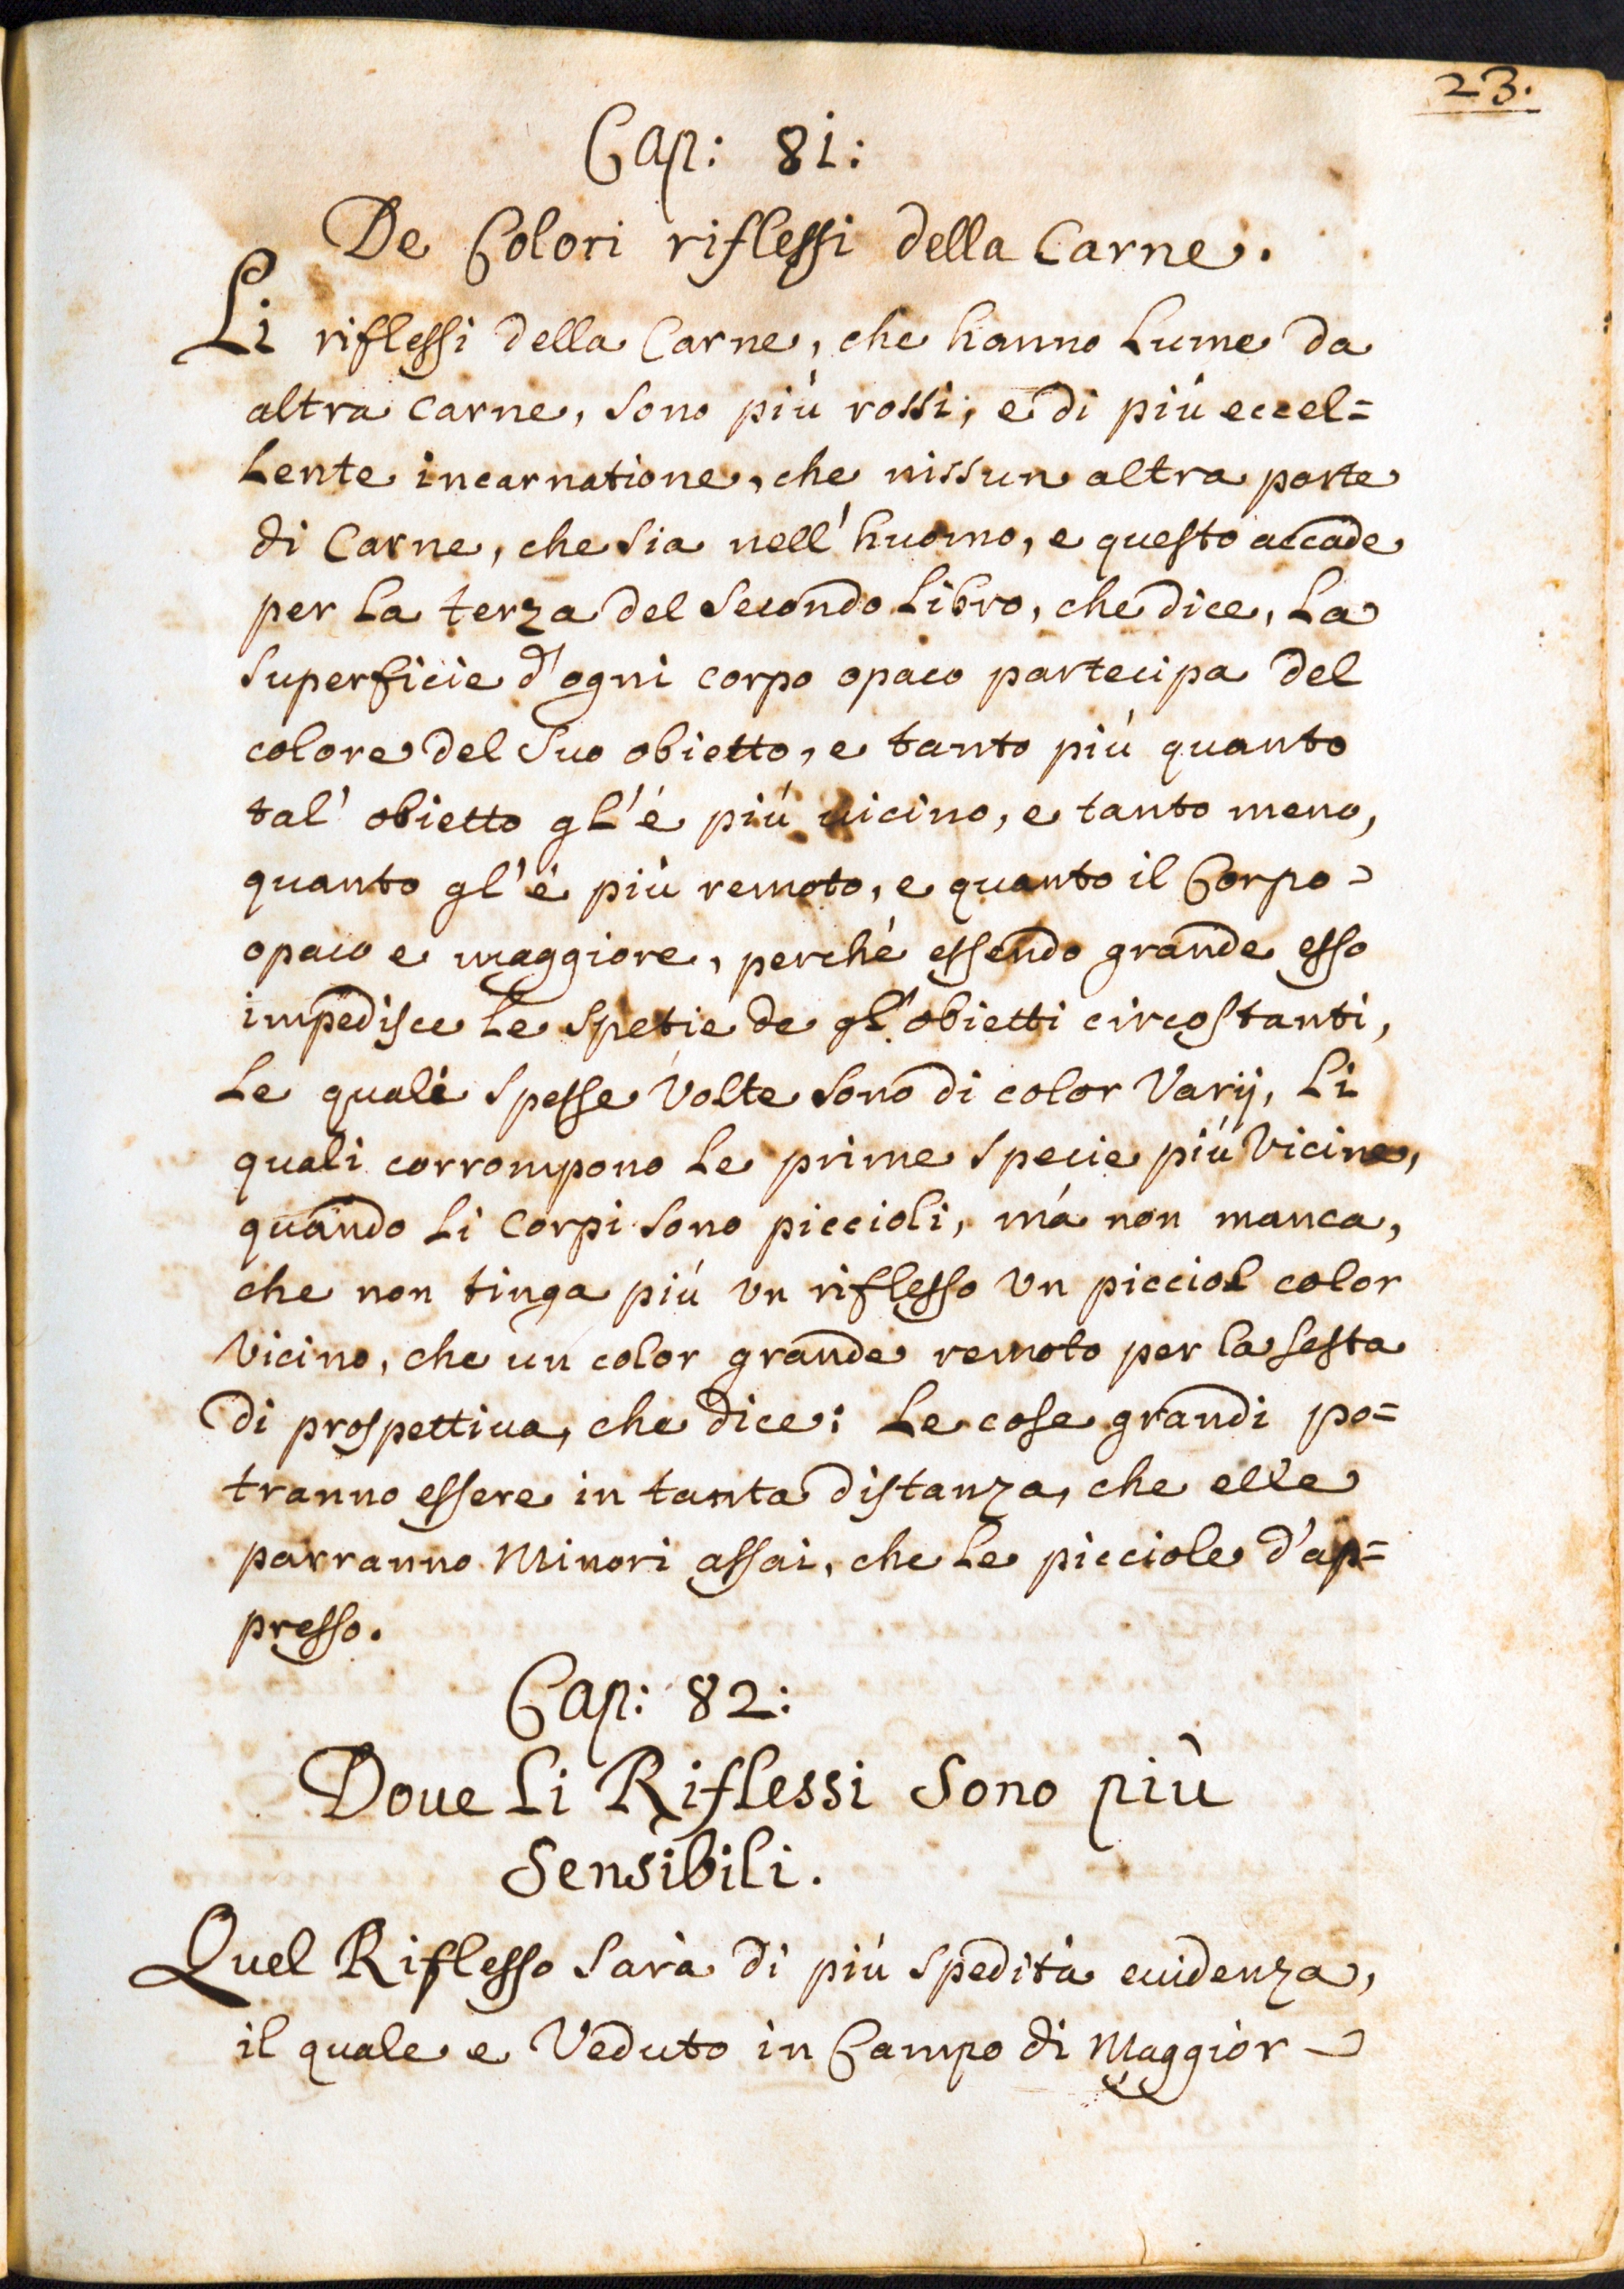 23.
Cap: 81:
De Colori riflessi della Carne.
Li riflessi della Carne, che hanno Lume da
altra carne, sono più rossi, e di più eccel=
lente incarnatione, che nissun altra parte
di Carne, che sia nell' huomo, e questo accade
per la terza del secondo Libro, che dice, La
superficie d'ogni corpo opaco partecipa del
colore del suo obietto, e tanto più quanto
tal' obietto gl'è più uicino, e tanto meno,
quanto gl'è più remoto, e quanto il Corpo
opaco e maggiore, perché essendo grande esso
impedisce le spetie de gl'obietti circostanti,
Le quali spesse Volte sono di color Varij, Li
quali corrompono le prime specie più Vicine,
quando li corpi sono piccioli, má non manca,
che non tinga più vn riflesso vn picciol color
Vicino, che un color grande remoto per la sesta
di prospettiua, che dice: Le cose grandi po=
tranno essere in tanta distanza, che elle
parranno Minori assai, che le picciole d'ap=
presso.
Cap: 82:
Doue Li Riflessi Sono più
Sensibili.
Quel Riflesso sarà di più spedita euidenza,
il quale e Veduto in Campo di Maggior